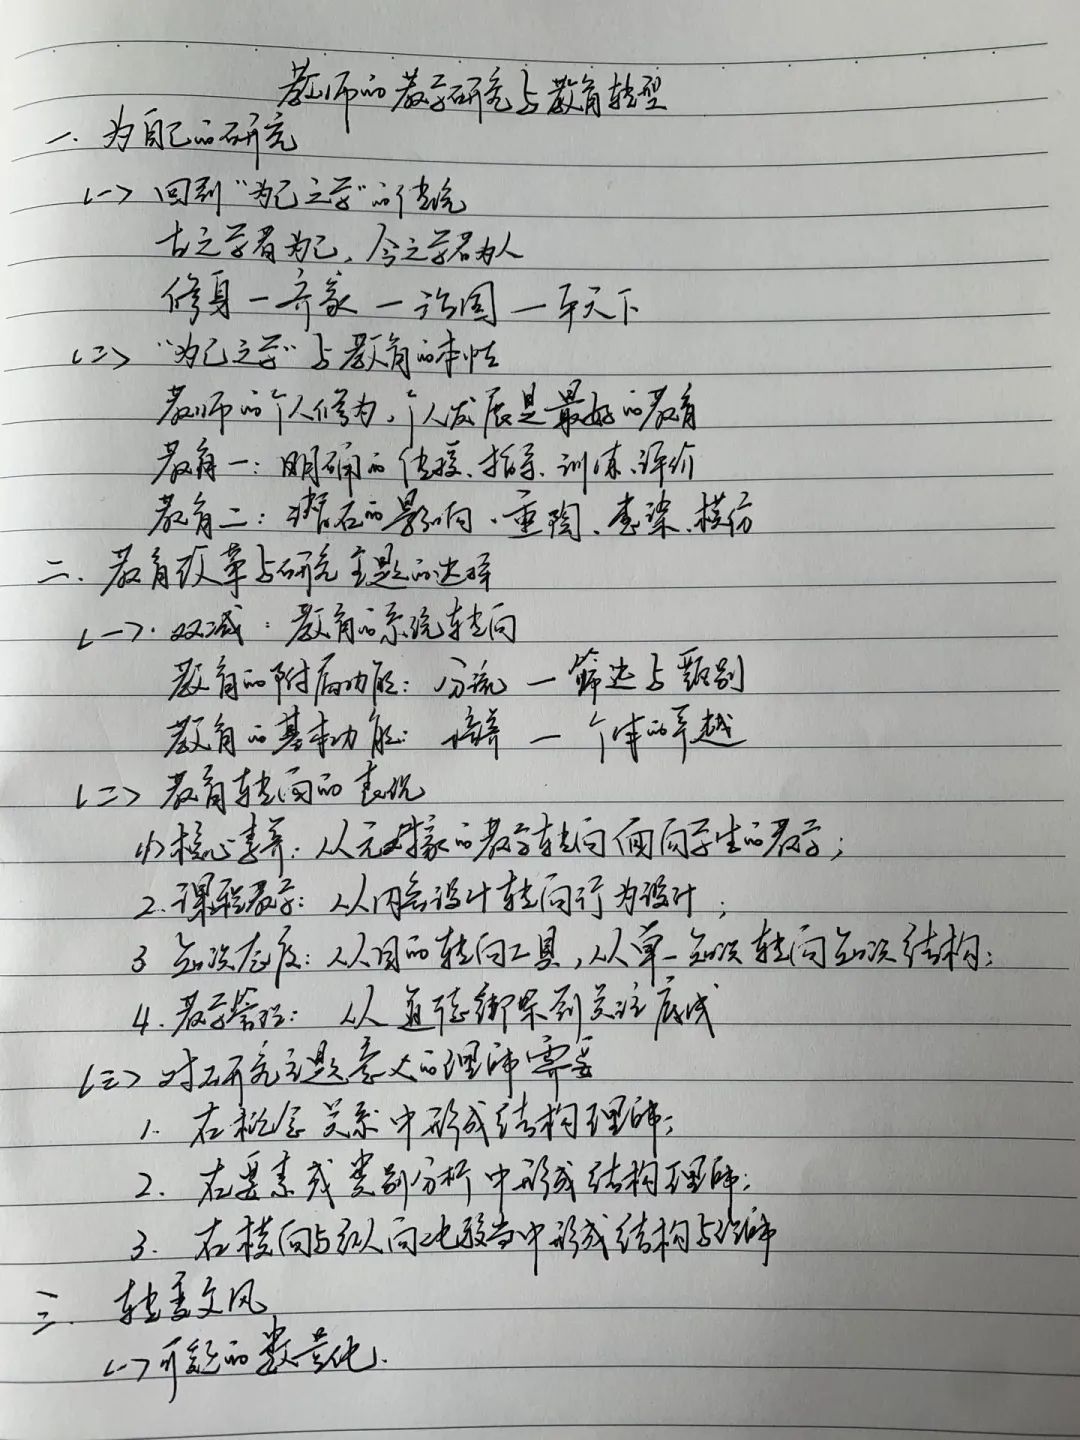 教师的教学研究与教育转型
一、为自己的研究
(一) 回到“为己之学”的传统
古之学者为己，今之学者为人
修身一齐家一治国一平天下
(二) “为己之学”与教育的本性
教师的个人修为，个人发展是最好的教育
教育一：明确的传授、指导、训练、评价
教育二：潜在的影响、熏陶、感染、模仿
二、教育改革与研究主题的选择
(一)．双减：教育的系统转向
教育的附属功能：分流一筛选与甄别
教育的基本功能：培养一个体的卓越
(二) 教育转向的表现
(1) 核心素养：从无对象的教学转向面向学生的教学；
2. 课程教学：从内容设计转向行为设计；
3 知识态度：从目的转向工具，从单一知识转向知识结构；
4. 教学管理：从道德绑架到关注底线
(三) 对研究主题意义的理解需要
1. 在概念关系中形成结构理解；
2. 在要素或类别分析中形成结构理解；
3. 在横向与纵向比较当中形成结构与理解
三、转变文风
(一) 可疑的数量化.